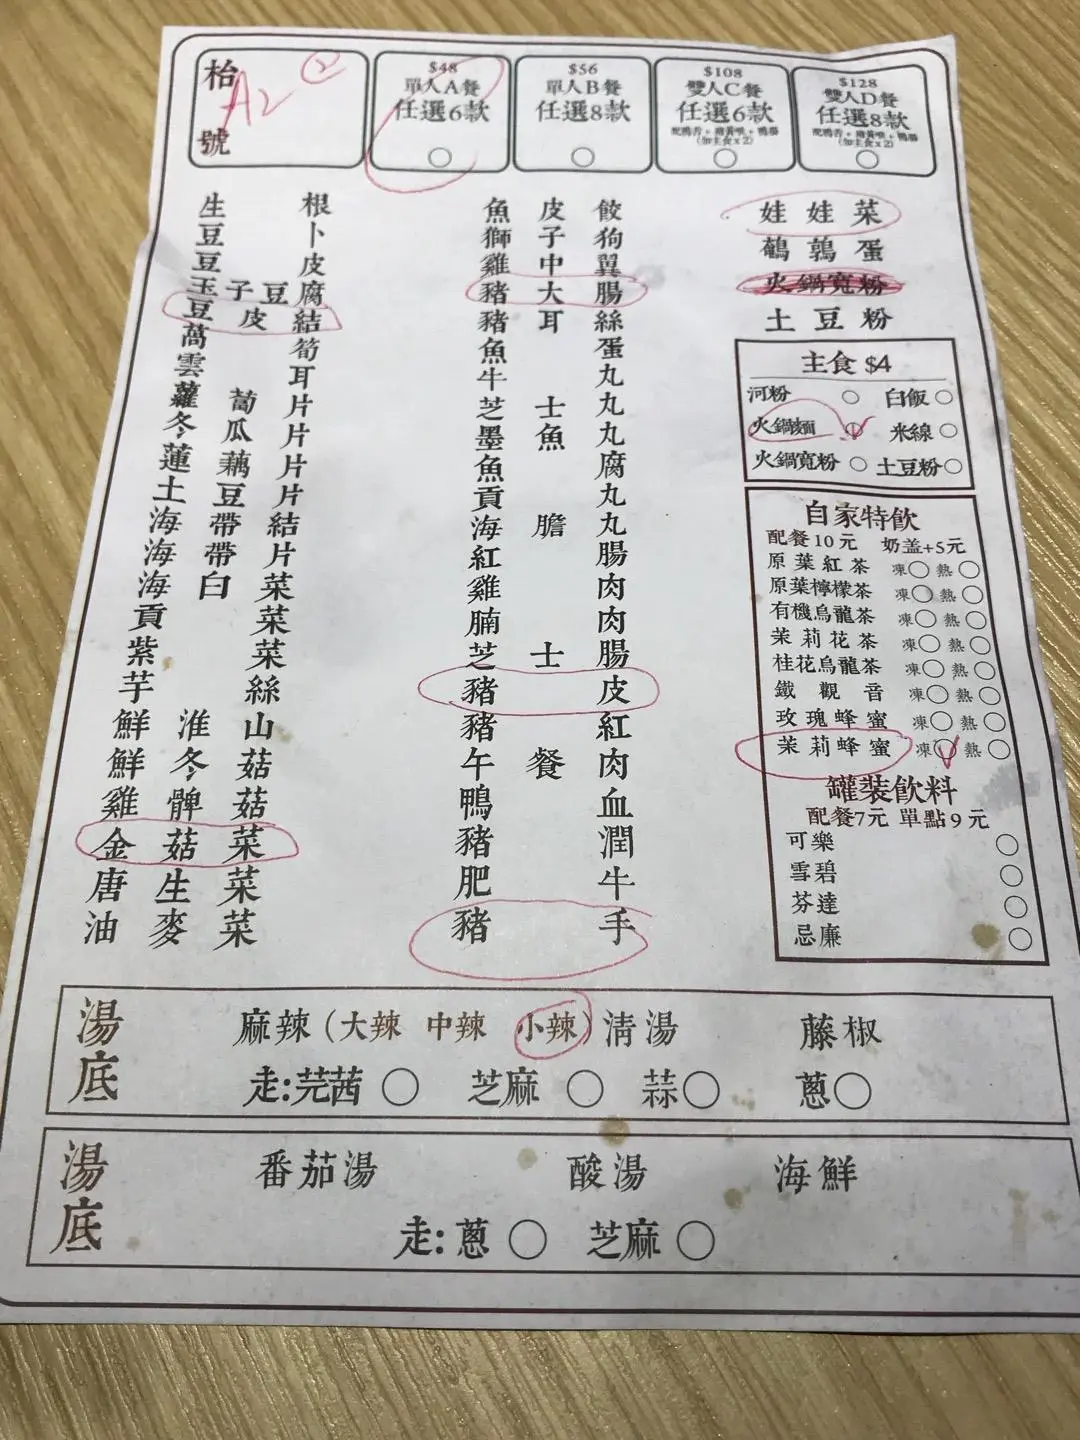 枱號 A2 2
$48
單人A餐
任選6款
$56
單人B餐
任選8款
$108
雙人C餐
任選6款
(加主食x2)
$128
雙人D餐
任選8款
(加主食x2)
生根
豆卜
豆皮
玉子豆腐
豆皮結
萵筍
雲耳
蘿蔔片
冬瓜片
蓮藕片
土豆片
海帶結
海帶片
海白菜
貢菜
紫菜
芋絲
鮮淮山
鮮冬菇
雞髀菇
金菇菜
唐生菜
油麥菜
魚皮餃
獅子狗
雞中翼
豬大腸
豬耳絲
魚蛋
牛丸
芝士丸
墨魚丸
魚腐
貢丸
海膽丸
紅腸
雞肉
腩肉
芝士腸
豬皮
豬紅
午餐肉
鴨血
豬潤
肥牛
豬手
娃娃菜
鵪鶉蛋
火鍋寬粉
土豆粉
主食 $4
河粉 白飯
火鍋麵 米線
火鍋寬粉 土豆粉
自家特飲
配餐10元 奶盖+5元
原葉紅茶 凍 熱
原葉檸檬茶 凍 熱
有機烏龍茶 凍 熱
茉莉花茶 凍 熱
桂花烏龍茶 凍 熱
鐵觀音 凍 熱
玫瑰蜂蜜 凍 熱
茉莉蜂蜜 凍 熱
罐装飲料
配餐7元 單點9元
可樂
雪碧
芬達
忌廉
湯底
麻辣(大辣 中辣 小辣) 清湯 藤椒
走:芫茜 芝麻 蒜 蔥
湯底
番茄湯 酸湯 海鮮
走:蔥 芝麻